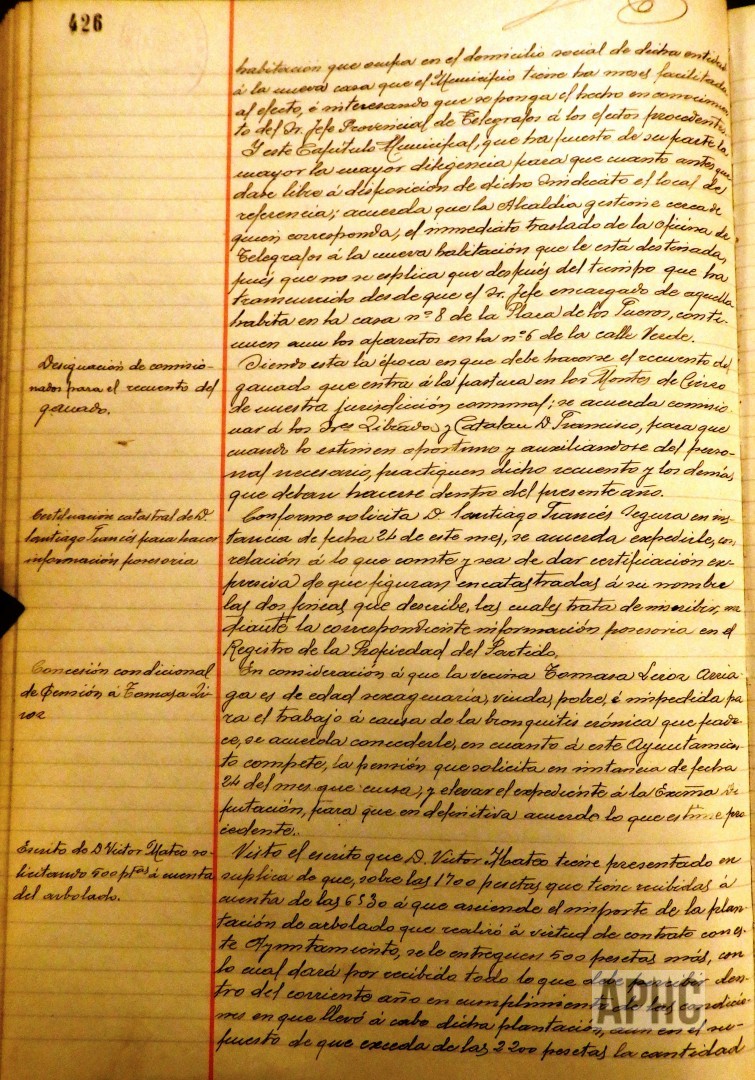 426
habitación que ocupa en el domicilio social de dicha entidad
á la nueva casa que el Municipio tiene ha meses facilitada
al efecto, é interesando que se ponga el hecho en conocimien
to del Sr. Jefe Provincial de Telegrafos á los efectos procedentes.
Y este Capitulo Municipal, que ha puesto de su parte la
mayor la mayor diligencia para que cuanto antes que
dase libre á disposición de dicho Sindicato el local de
referencia; acuerda que la Alcaldia gestione cerca de
quien corresponda, el inmediato traslado de la oficina de
Telegrafos á la nueva habitación que le está destinada,
pués que no se esplica que después del tiempo que ha
transcurrido desde que el Sr. Jefe encargado de aquella
habita en la casa nº 8 de la Plaza de los Fueros, conti-
nuen aun los aparatos en la nº 6 de la calle Verde.
Designación de comisio-
nados para el recuento del
ganado.
Siendo esta la época en que debe hacerse el recuento del
ganado que entra á la pastura en los Montes de Cierzo
de nuestra jurisdicción comunal; se acuerda comisio
nar á los Sres Librado y Catalan D. Francisco, para que
cuando lo estimen oportuno y auxiliandose del perso-
nal necesario, practiquen dicho recuento y los demás
que deban hacerse dentro del presente año.
Certificación catastral de D.
Santiago Francés para hacer
información posesoria
Conforme solicita D. Santiago Francés Segura en ins-
tancia de fecha 24 de este mes, se acuerda expedirle, con
relación á lo que conste y sea de dar certificación ex-
presiva de que figuran encatastradas á su nombre
las dos fincas que describe, las cuales trata de inscribir, me
diante la correspondiente información posesoria en el
Registro de la Propiedad del Partido.
Concesión condicional
de Pensión á Tomasa Li
roz
En consideración á que la vecina Tomasa Liroz Arria
ga es de edad sexagenaria, viuda, pobre, é impedida pa
ra el trabajo á causa de la bronquitis crónica que pade
ce, se acuerda concederle, en cuanto á este Ayuntamien
to compete, la pensión que solicita en instancia de fecha
24 del mes que cursa, y elevar el expediente á la Excma Di
putación, para que en definitiva acuerde lo que estime pro
cedente.
Escrito de D. Victor Mateo so-
licitando 500 ptas á cuenta
del arbolado.
Visto el escrito que D. Victor Mateo tiene presentado en
suplica de que, sobre las 1700 pesetas que tiene recibidas á
cuenta de las 6530 á que asciende el importe de la plan-
tación de arbolado que realizó á virtud de contrato con es-
te Ayuntamiento, se le entreguen 500 pesetas más, con
lo cual dará por recibido todo lo que debe percibir den-
tro del corriente año en cumplimiento de las condicio-
nes en que llevó á cabo dicha plantación, aun en el su-
puesto de que exceda de las 2200 pesetas la cantidad